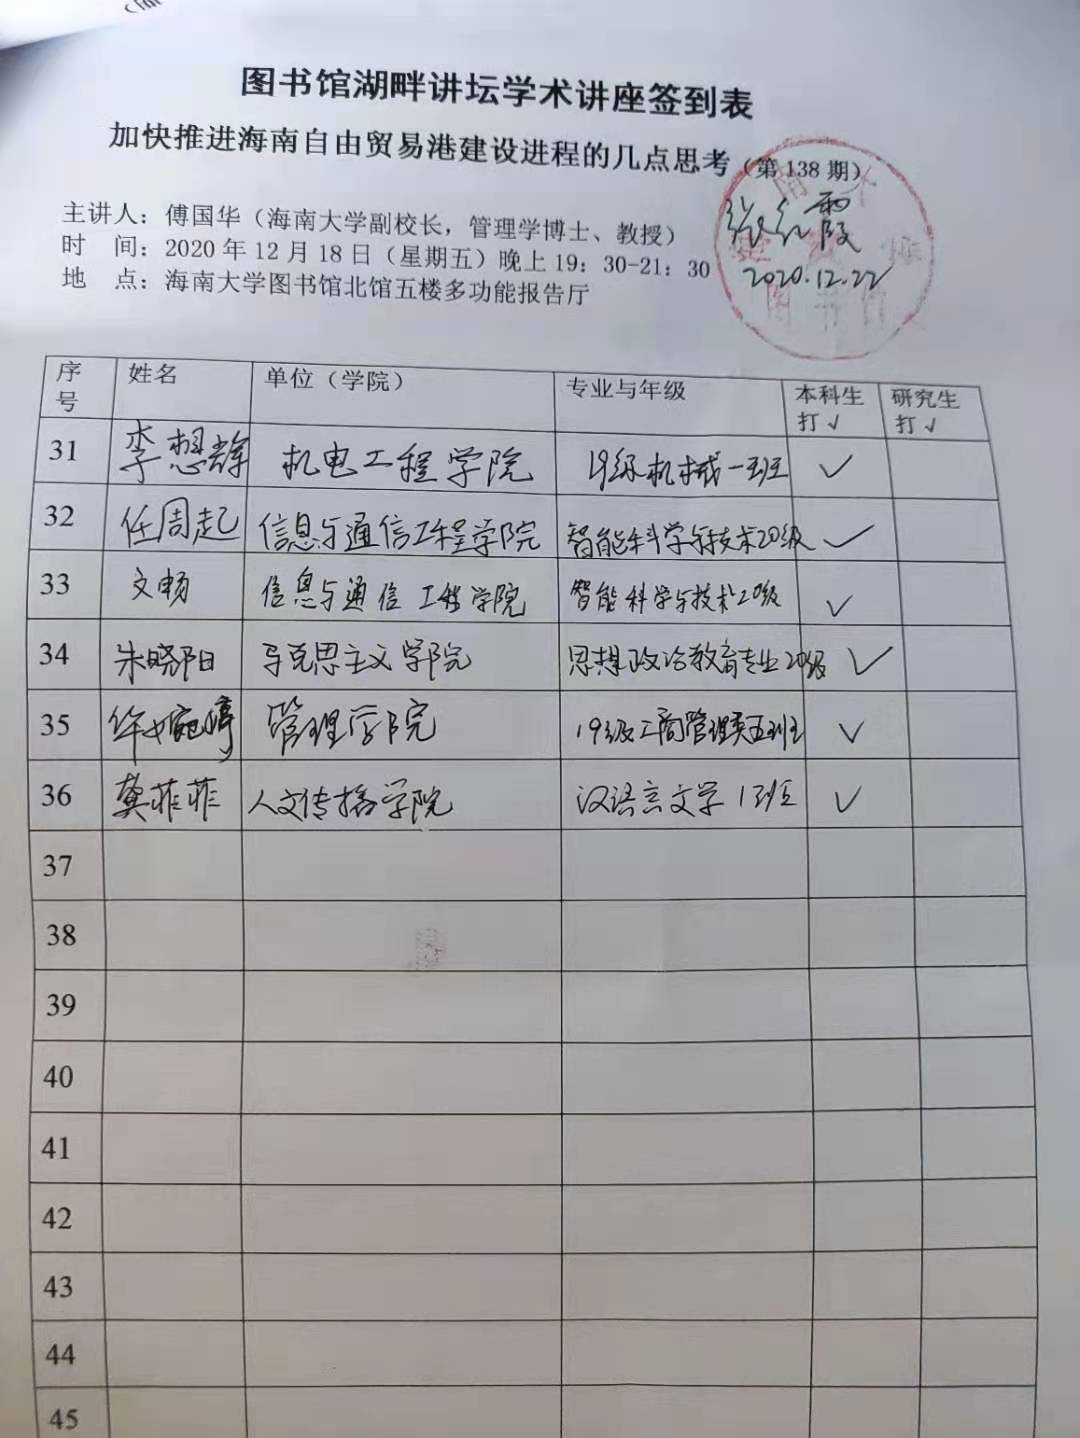 图书馆湖畔讲坛学术讲座签到表
加快推进海南自由贸易港建设进程的几点思考（第 138 期）
主讲人：傅国华（海南大学副校长，管理学博士、教授）
时 间：2020 年 12 月 18 日（星期五）晚上 19：30-21：30
地 点：海南大学图书馆北馆五楼多功能报告厅
2020.12.22
图书馆
序号 姓名 单位（学院） 专业与年级 本科生打√ 研究生打√
31 李想辉 机电工程学院 19级机械一班 √
32 任周起 信息与通信工程学院 智能科学与技术20级 √
33 文畅 信息与通信工程学院 智能科学与技术20级 √
34 朱晓阳 马克思主义学院 思想政治教育专业20级 √
35 管理学院 19级工商管理类五班 √
36 龚菲菲 人文传播学院 汉语言文学1班 √
37
38
39
40
41
42
43
44
45